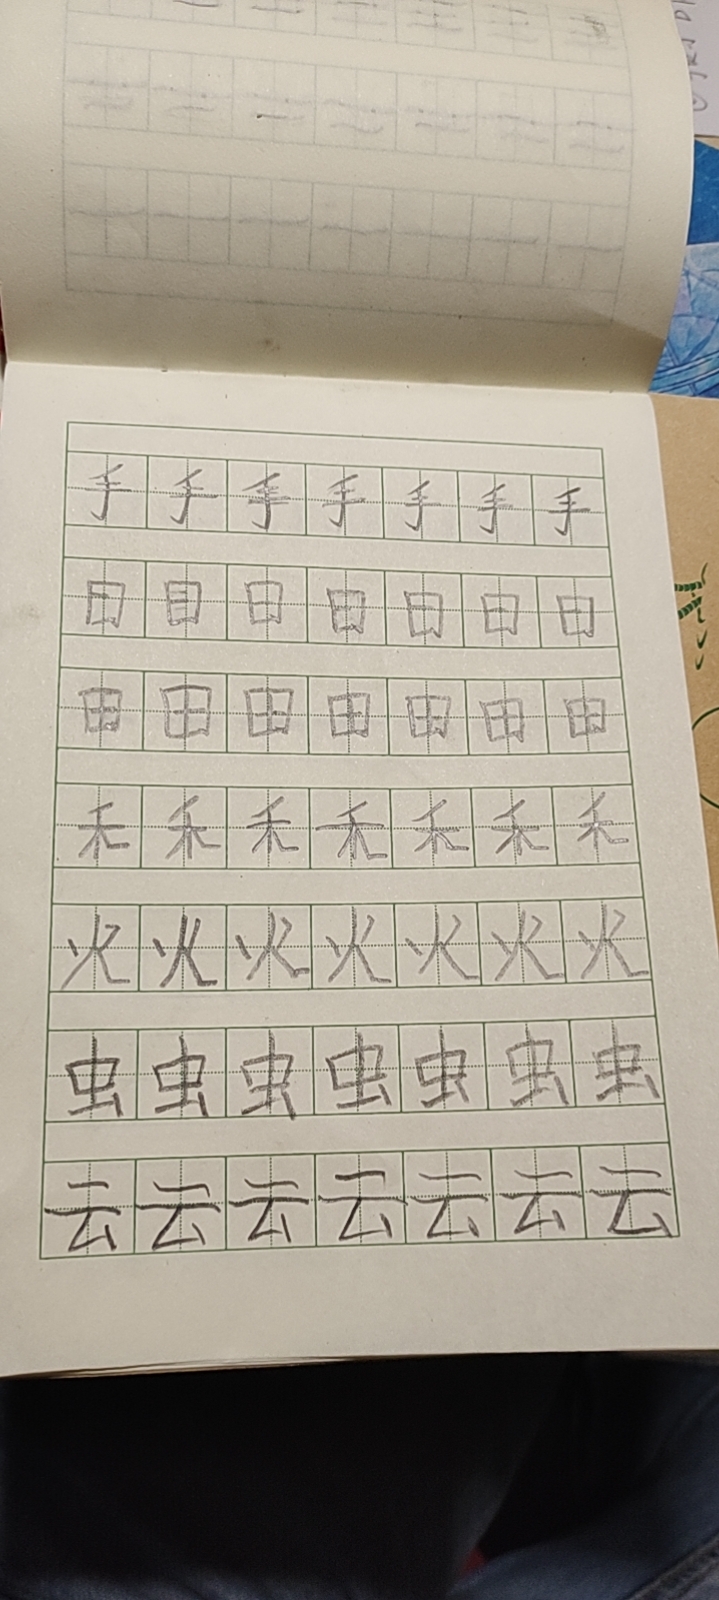 手手手手手手手
日目日日日日日
田田田田田田田
禾禾禾禾禾禾禾
火火火火火火火
虫虫虫虫虫虫虫
云云云云云云云